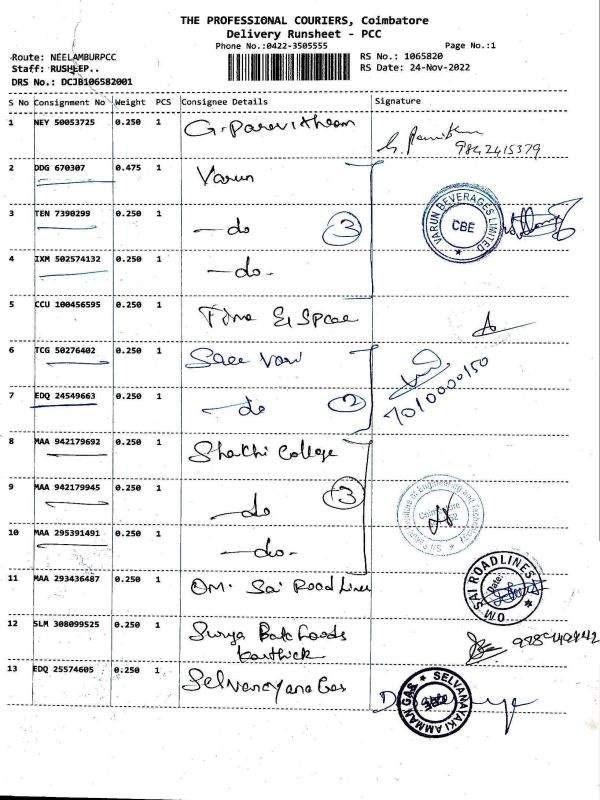 THE PROFESSIONAL COURIERS, Coimbatore
Delivery Runsheet - PCC
Phone No.:0422-3505555 Page No.:1
Route: NEELAMBURPCC RS No.: 1065820
Staff: RUSHLEP.. RS Date: 24-Nov-2022
DRS No.: DCJB106582001
S No Consignment No Weight PCS Consignee Details Signature
1 NEY 50053725 0.250 1
9842415379
2 DDG 670307 0.475 1 Varun
VARUN BEVERAGES LIMITED
CBE
3 TEN 7390299 0.250 1 —do 3
4 IXM 502574132 0.250 1 —do-
5 CCU 100456595 0.250 1
6 TCG 50276402 0.250 1 Saee Vari
7 EDQ 24549663 0.250 1 —do 2
7010000150
8 MAA 942179692 0.250 1 Shakthi College
9 MAA 942179945 0.250 1 —do 3
Institute of Engineering and Technology
10 MAA 295391491 0.250 1 —do-
11 MAA 293436487 0.250 1 OM. Sai Road Lines
OM SAI ROADLINES
Date:
12 SLM 308099525 0.250 1 Surya
Karthick
13 EDQ 25574605 0.250 1 Selvanayana Gas
SELVANAYAKI AMMAN GAS